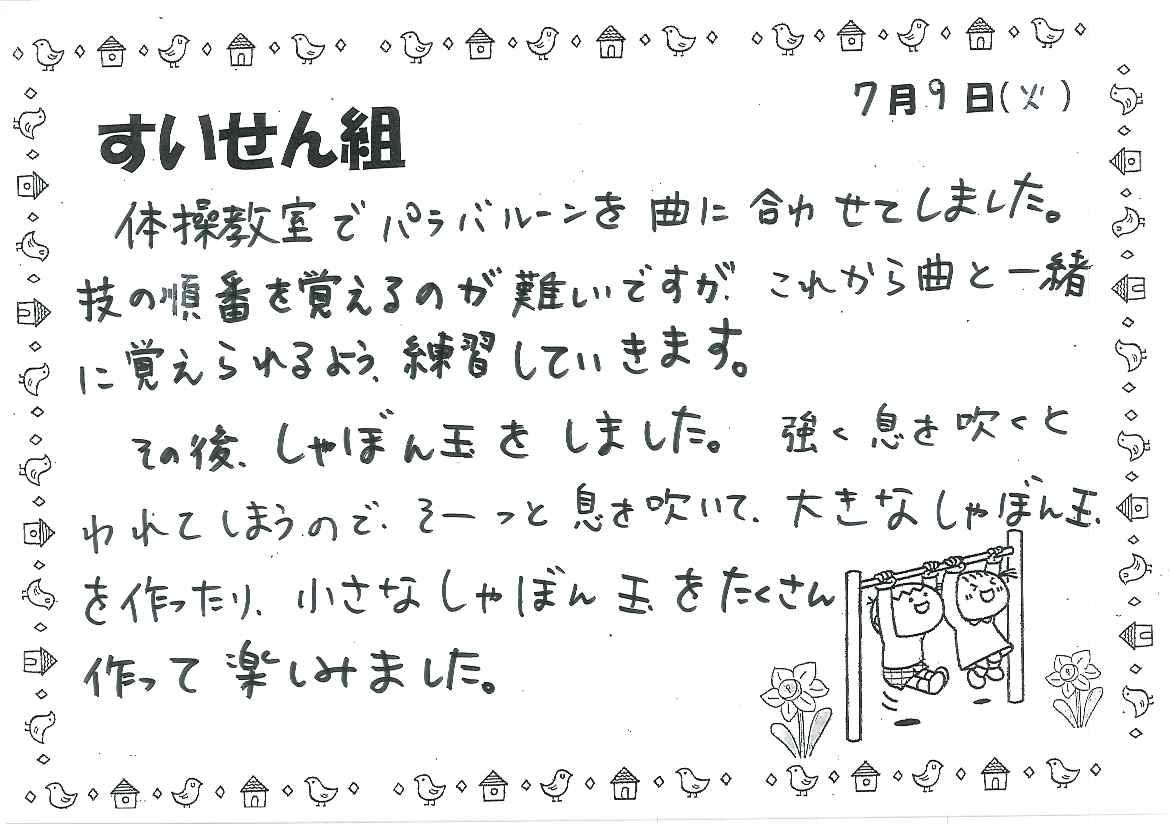 7月9日(火)
すいせん組
体操教室でパラバルーンを曲に合わせてしました。
技の順番を覚えるのが難しいですが、これから曲と一緒
に覚えられるよう、練習していきます。
その後、しゃぼん玉をしました。強く息を吹くと
われてしまうので、そーっと息を吹いて、大きなしゃぼん玉
を作ったり、小さなしゃぼん玉をたくさん
作って楽しみました。